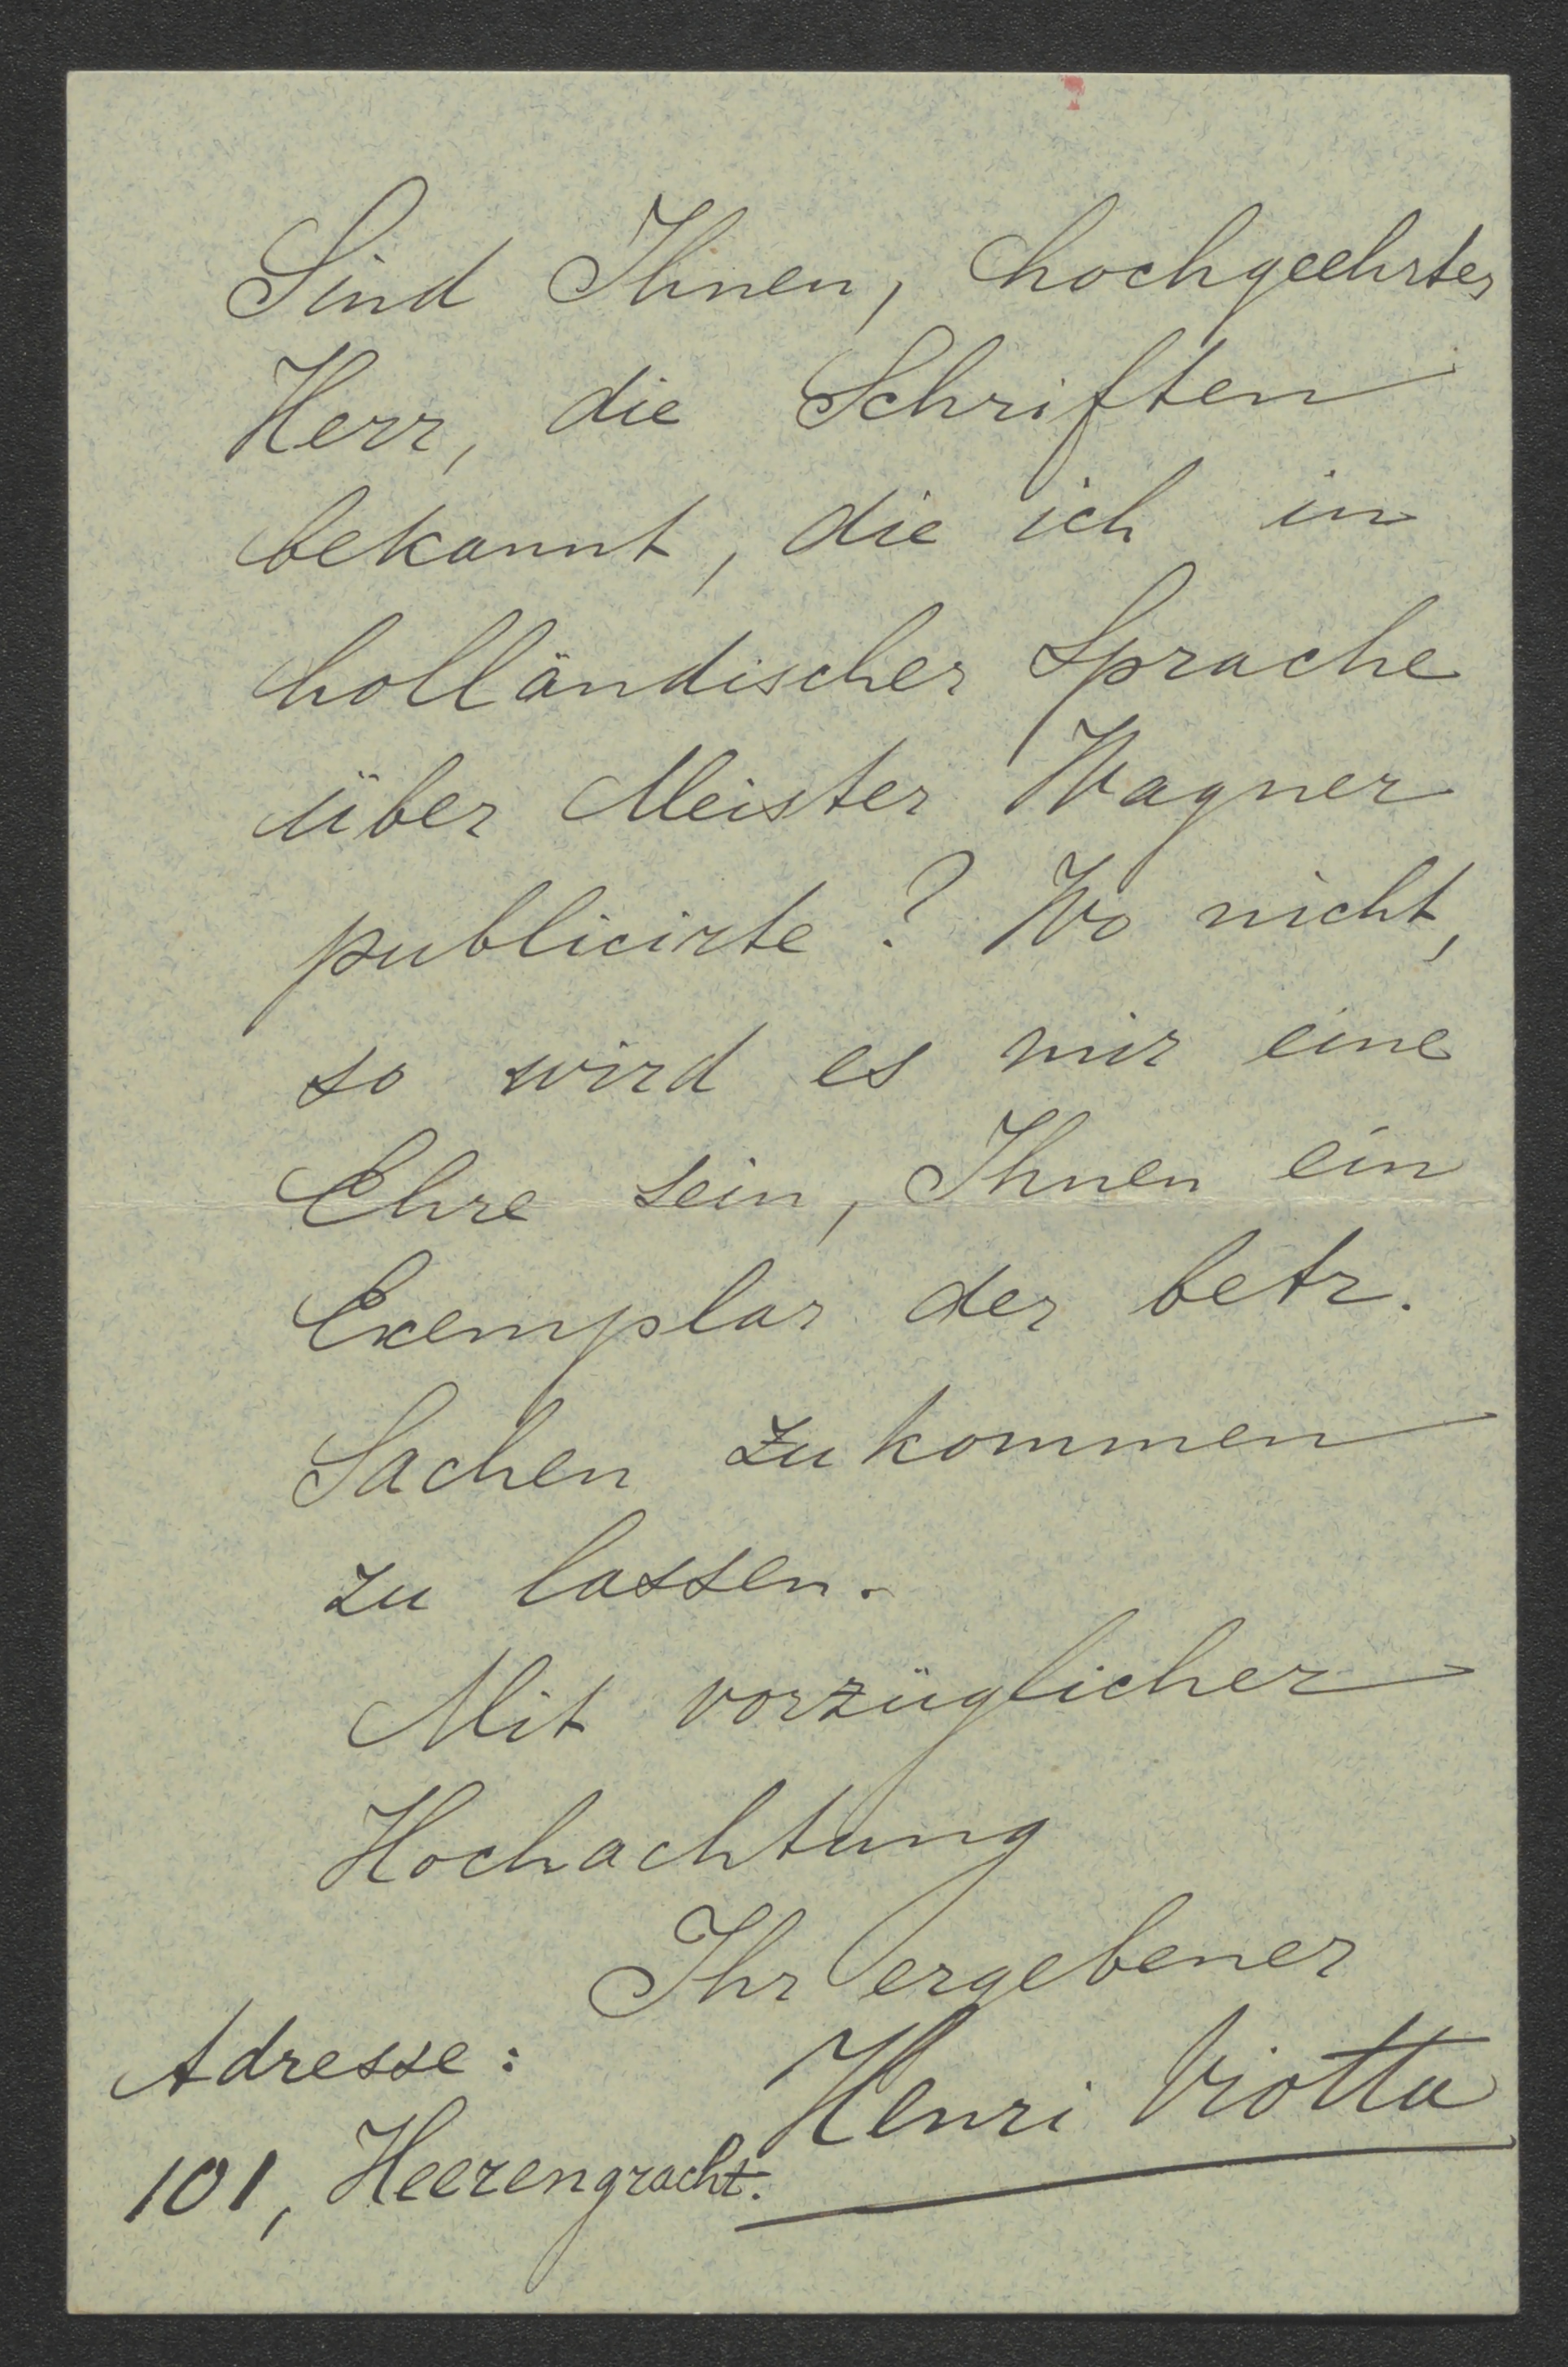 Sind Ihnen, hochgeehrter
Herr, die Schriften
bekannt, die ich in
holländischer Sprache
über Meister Wagner
publicirte? Wo nicht,
so wird es mir eine
Ehre sein, Ihnen ein
Exemplar der betr.
Sachen zukommen
zu lassen.
Mit vorzüglicher
Hochachtung
Ihr ergebener
Henri Viotta
Adresse:
101, Heerengracht.